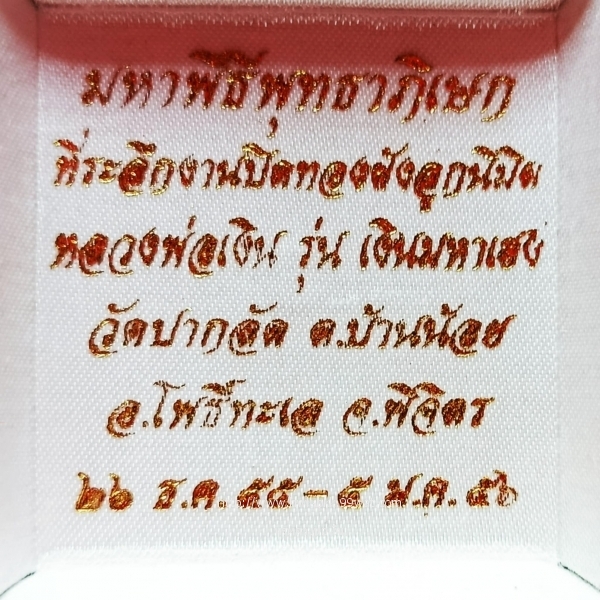 มหาพิธีพุทธาภิเษก
ที่ระลึกงานปิดทองฝังลูกนิมิต
หลวงพ่อเงิน รุ่น เงินมหาเฮง
วัดปากลัด ต.บ้านน้อย
อ.โพธิ์ทะเล จ.พิจิตร
๒๖ ธ.ค. ๕๕ - ๕ ม.ค. ๕๖